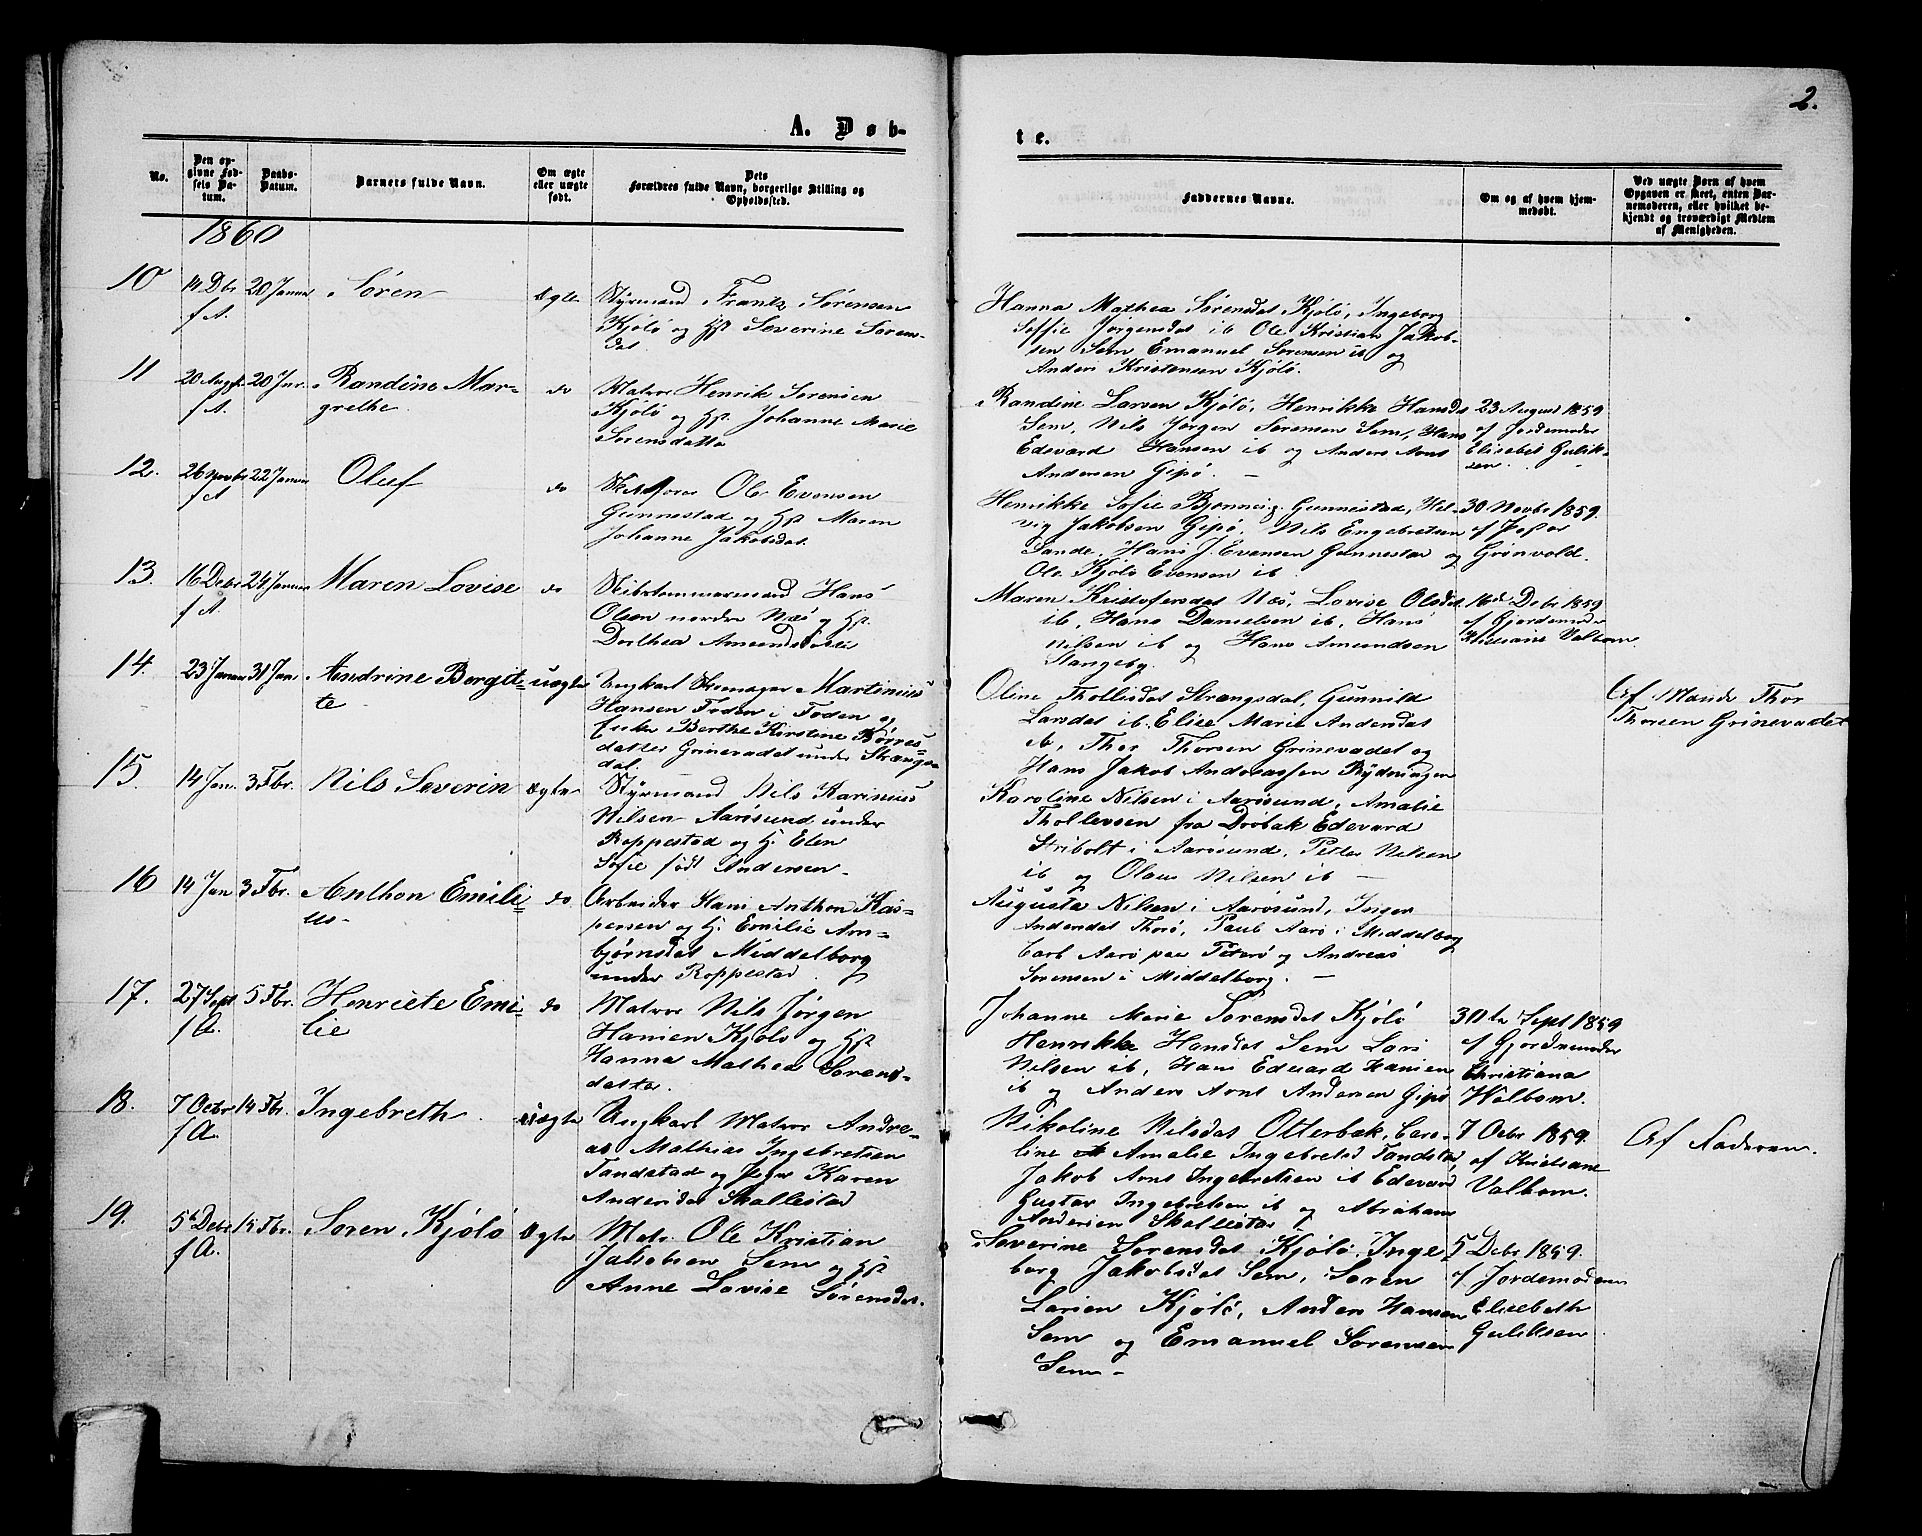 2.
A. Døb-
te.
No.
Den op-
givne Fød-
sels Da-
tum.
Daabs-
Datum.
Barnets fulde Navn.
Om ægte
eller uægte
født.
Dets
Forældres fulde Navn, borgerlige Stilling og
Opholdssted.
Faddernes Navne.
Om og af hvem hjem-
medøbt.
Ved uægte Børn af hvem
Opgaven er skeet, enten Bar-
nemoderen, eller hvilket be-
kjendt og troværdigt Medlem
af Menigheden.
1860
10
14 Dbr
f A.
20 Januar
Søren
Ægte
Styrmand Frantz Sørensen
Kjölö og Hst Severine Sørens-
dat.
Hanna Mathea Sørensdat Kjölö, Ingeborg
Soffie Jørgensdat ib Ole Kristian Jakob-
sen Sem Emanuel Sørensen ib og
Anders Kristensen Kjölö.
11
20 Augst
f A.
20 Jnr.
Randine Mar-
grethe.
do
Matros Henrik Sorensen
Kjölö og Hst Johanne Marie
Sorensdatter
Randine Larsen Kjölö, Henrikke Hansdt
Sem, Nils Jørgen Sørensen Sem, Hans
Edevard Hansen ib og Anders Arnt
Andersen Gipö. -
23 August 1859
af Jordemoder
Elisabet Gulik-
sen.
12.
26 Novbr
f A
22 Januar
Oluf
do
Ole Evensen
Gunnestad og Hst Maren
Johanne Jakobsdat.
Henrikke Sofie Gunnestad, Hel-
vig Jakobsen Gipö, Nils Engebretsen
Sande, Hans J. Evensen Gunnestad og
Ole Kjölö Evensen ib.
30 Novbr 1859.
af
Grönvold.
13.
16 Debr
f A.
24 Januar
Maren Lovise
do
Skibstømmermand Hans
Olsen nordre Næs og Hst.
Dorthea Amundsdatter
Maren Kristofersdat Næs, Lovise Olsdat
ib, Hans Danielsen ib, Hans
Nilsen ib og Hans Amundsen
Stangeby.
16de Debr 1859
af Gjordemoder
Kristiane Valbom.
14.
23 Januar
31 Jan
Andrine Bergit-
te
uægte
Ungkarl Skomager Martinius
Hansen Foden i Foden og
Enke Berthe Kirstine Børres-
datter Grinevadet under Strangs-
dal.
Oline Thollisdat Strangsdal, Gunnild
Larsdat ib. Elise Marie Andersdat
ib, Thor Thorsen Grinevadet og
Hans Jakob Andreassen Rydningen
Af Mand Thor
Thorsen Grinevadet
15.
14 Jan.
3 Fbr.
Nils Severin
Ægte
Styrmand Nils Karinius
Nilsen Aarösund under
Roppestad og H. Elen
Sofie født Andersen
Karoline Nilsen i Aarösund, Amalie
Thollevsen fra Dröbak Edevard
Stribolt i Aarösund, Peter Nilsen
ib og Olaus Nilsen ib -
16
14 Jan
3 Fbr.
Anthon Emili-
us-
do
Arbeider Hans Anthon Kas-
persen og H. Emilie Arn-
bjørnsdat Middelborg
under Roppestad
Augusta Nilsen i Aarösund, Inger
Andersdat Thorö, Paul Aarö i Middelborg
Carl Aarö paa Peterö og Andreas
Sørensen i Middelborg. -
17.
27 Sept
f A.
5 Fbr.
Henriete Emi-
lie
do
Matros Nils Jørgen
Hansen Kjölö og Hst
Hanna Mathea Sørens-
datter.
Johanne Marie Sorensdat Kjölö
Henrikke Hansdat Sem Lars
Nilsen ib, Hans Edvard Hansen
ib og Anders Arnt Andersen Gipö
30te Sept 1859
af Gjordemoder
Christiana
Walbom.
18.
7 Octbr
f A.
14 Fbr.
Ingebreth
uægte
Ungkarl Matros Andre-
as Mathias Ingebretsen
Tandstad og Pige Karen
Andersdat Skallestad
Nikoline Nilsdat Otterbæk, Caro-
line Amalie Ingebretsd Tandstad
Jakob Arnt Ingebretsen ib Edevard
Gustav Ingebretsen ib og Abraham
Andersen Skallestad
7 Octbr 1859.
af Kristiane
Valbom.
Af Faderen.
19.
5te Debr
f A.
15 Fbr.
Soren Kjölö
Ægte
Matr. Ole Kristian
Jakobsen Sem og Hst
Anne Lovise Sørensdat.
Severine Sorensdat Kjölö, Inge-
borg Jakobsdat Sem, Soren
Larsen Kjölö, Anders Hansen
Sem og Emanuel Sorensen
Sem -
5 Debr 1859.
af Jordemoderen
Elisabeth
Guliksen